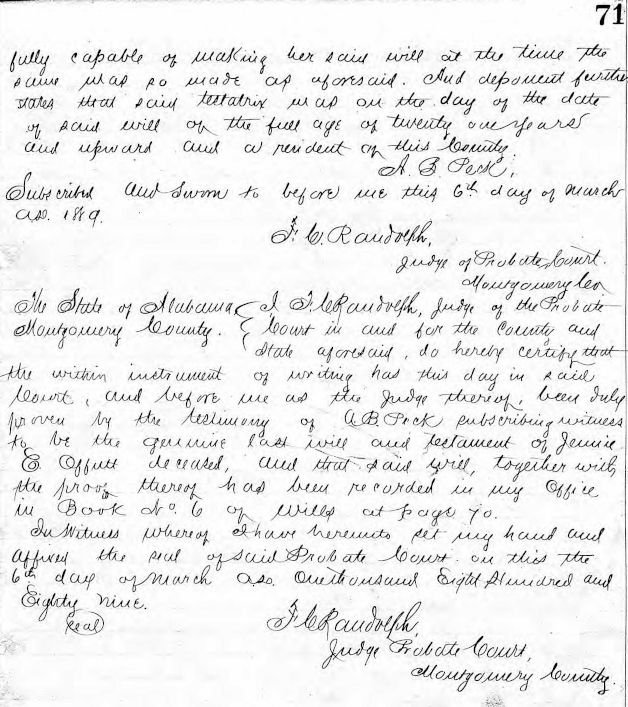 71
fully capable of making her said will at the time the
same was so made as aforesaid. And deponent further
states that said testatrix was on the day of the date
of said will of the full age of twenty one years
and upward and a resident of this County.
A. B. Peck,
Subscribed and sworn to before me this 6th day of March
A.D. 1889.
F. C. Randolph,
Judge of Probate Court.
Montgomery Co
The State of Alabama { I F. C. Randolph, Judge of the Probate
Montgomery County. { Court in and for the County and
State aforesaid, do hereby certify that
the within instrument of writing has this day in said
Court, and before me as the Judge thereof, been duly
proven by the testimony of A. B. Peck subscribing witness
to be the genuine last will and testament of Jennie
E. Offutt deceased, and that said will, together with
the proof thereof has been recorded in my Office
in Book No. 6 of wills at page 70.
In Witness whereof I have hereunto set my hand and
affixed the seal of said Probate Court on this the
6th day of March A.D. One thousand Eight Hundred and
Eighty Nine.
Seal
F. C. Randolph,
Judge Probate Court,
Montgomery County.